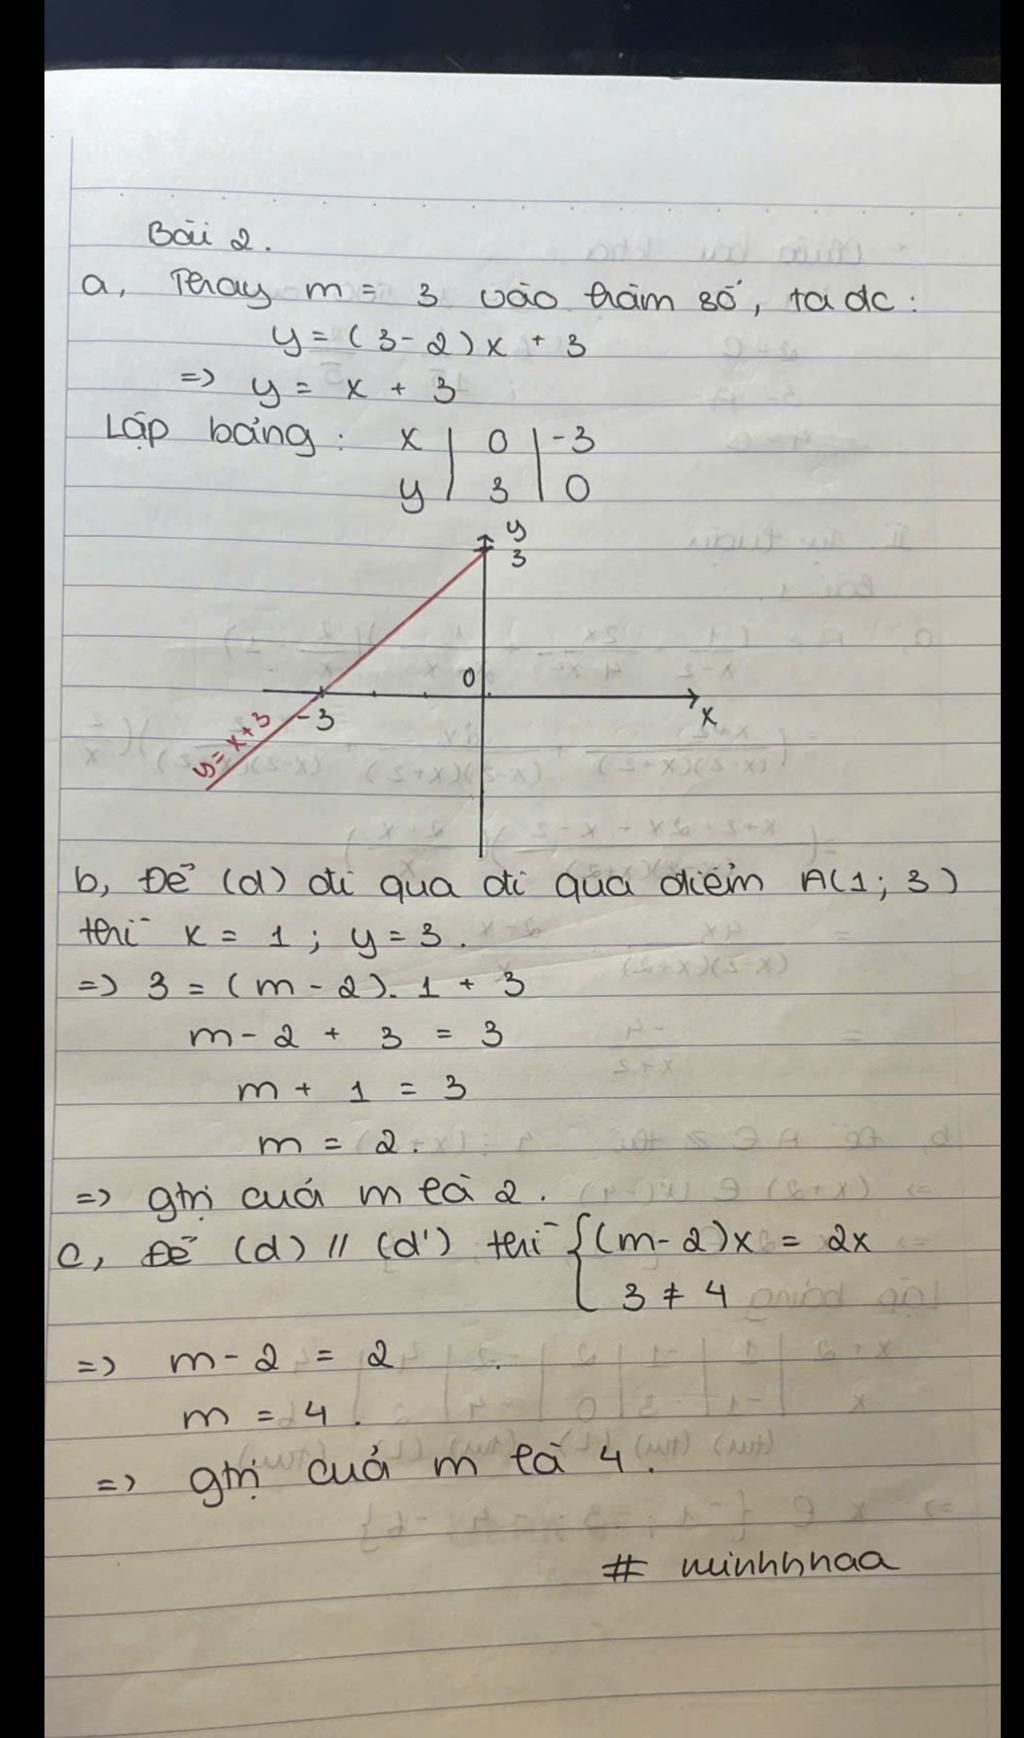 Bài 2.
a, Thay m = 3 vào hàm số, ta đc :
y = ( 3 - 2 ) x + 3
=> y = x + 3
Lập bảng : x | 0 | -3
y | 3 | 0
y
3
0
-3
x
y = x + 3
b, Để (d) đi qua đi qua điểm A(1; 3)
thì x = 1 ; y = 3 .
=> 3 = ( m - 2 ). 1 + 3
m - 2 + 3 = 3
m + 1 = 3
m = 2 .
=> gtrị cuả m là 2 .
c, Để (d) // (d') thì { (m - 2)x = 2x
3 ≠ 4
=> m - 2 = 2
m = 4 .
=> gtrị cuả m là 4 .
# minhhnaa